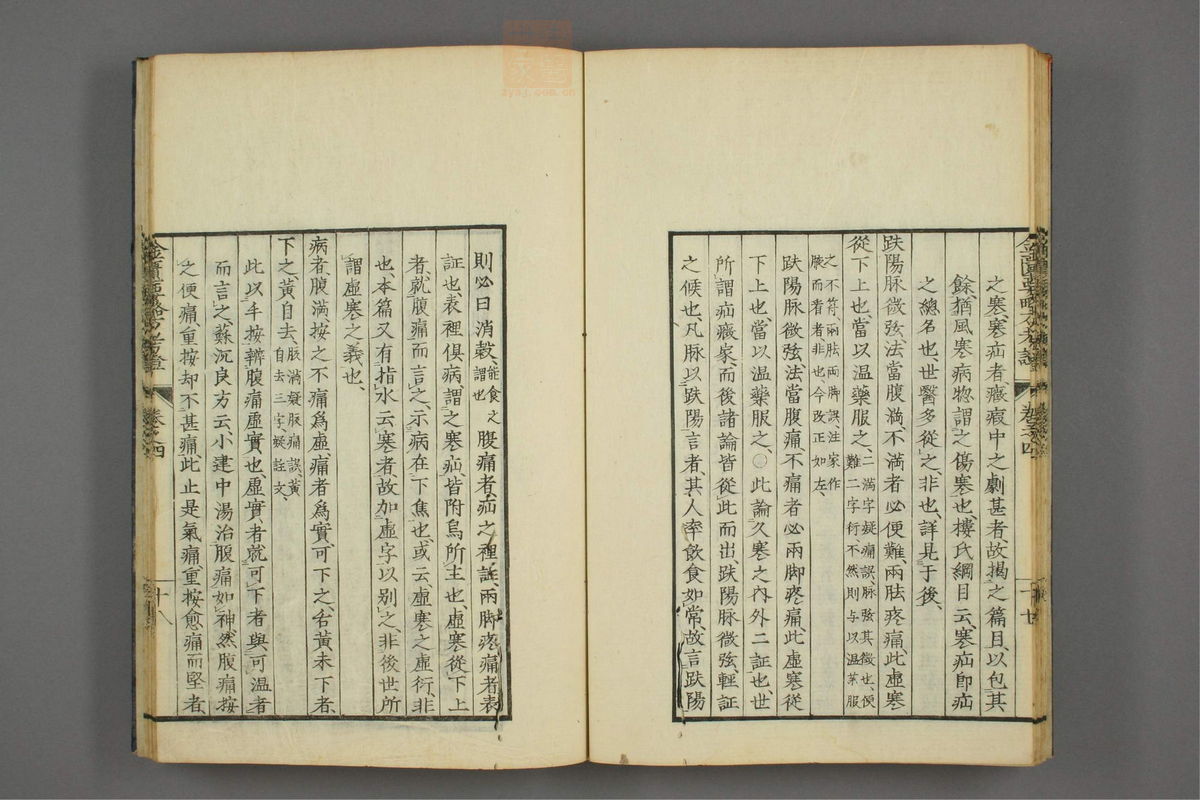 之寒寒疝者癥瘕中之劇甚者故揭之篇目以包其
餘猶風寒病惣謂之傷寒也樓氏綱目云寒疝即疝
之總名也世醫多從之非也詳見于後
趺陽脉微弦法當腹滿不滿者必便難兩胠疼痛此虛寒
從下上也當以温藥服之二滿字疑痛誤脉弦其微也便
難二字衍不然則与以温藥服
之不符兩胠兩脚誤注家作
胠而者者非也今改正如左
趺陽脉微弦法當腹痛不痛者必兩脚疼痛此虛寒從
下上也當以温藥服之○此論久寒之内外二証也世
所謂疝癥家而後諸論皆從此而出趺陽脉微弦輕証
之候也凡脉以趺陽言者其人率飲食如常故言趺陽
金匱要略
卷之四
則必曰消穀能食之
謂也
腹痛者疝之裡証兩脚疼痛者表
証也表裡俱病謂之寒疝皆附烏所主也虛寒從下上
者就腹痛而言之示病在下焦也或云虛寒之虛衍非
也本篇又有指水云寒者故加虛字以别之非後世所
謂虛寒之義也
病者腹滿按之不痛爲虛痛者爲實可下之舌黃未下者
下之黃自去脹滿疑脹痛誤黃
自去三字疑註文
此以手按辨腹痛虛實也虛實者就可下者與可温者
而言之蘇沉良方云小建中湯治腹痛如神然腹痛按
之便痛重按却不甚痛此止是氣痛重按愈痛而堅者
金匱要略
卷之四
十八